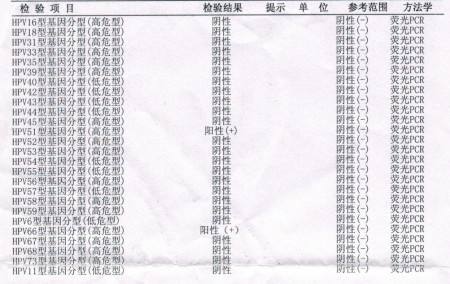 检 验 项 目 检验结果 提示 单 位 参考范围 方法学
HPV16型基因分型(高危型) 阴性 阴性(-) 荧光PCR
HPV18型基因分型(高危型) 阴性 阴性(-) 荧光PCR
HPV31型基因分型(高危型) 阴性 阴性(-) 荧光PCR
HPV33型基因分型(高危型) 阴性 阴性(-) 荧光PCR
HPV35型基因分型(高危型) 阴性 阴性(-) 荧光PCR
HPV39型基因分型(高危型) 阴性 阴性(-) 荧光PCR
HPV40型基因分型(低危型) 阴性 阴性(-) 荧光PCR
HPV42型基因分型(低危型) 阴性 阴性(-) 荧光PCR
HPV43型基因分型(低危型) 阴性 阴性(-) 荧光PCR
HPV44型基因分型(低危型) 阴性 阴性(-) 荧光PCR
HPV45型基因分型(高危型) 阴性 阴性(-) 荧光PCR
HPV51型基因分型(高危型) 阳性(+) 阴性(-) 荧光PCR
HPV52型基因分型(高危型) 阴性 阴性(-) 荧光PCR
HPV53型基因分型(高危型) 阴性 阴性(-) 荧光PCR
HPV54型基因分型(低危型) 阴性 阴性(-) 荧光PCR
HPV55型基因分型(低危型) 阴性 阴性(-) 荧光PCR
HPV56型基因分型(高危型) 阴性 阴性(-) 荧光PCR
HPV57型基因分型(低危型) 阴性 阴性(-) 荧光PCR
HPV58型基因分型(高危型) 阴性 阴性(-) 荧光PCR
HPV59型基因分型(高危型) 阴性 阴性(-) 荧光PCR
HPV6型基因分型(低危型) 阴性 阴性(-) 荧光PCR
HPV66型基因分型(高危型) 阳性 (+) 阴性(-) 荧光PCR
HPV67型基因分型(高危型) 阴性 阴性(-) 荧光PCR
HPV68型基因分型(高危型) 阴性 阴性(-) 荧光PCR
HPV73型基因分型(高危型) 阴性 阴性(-) 荧光PCR
HPV11型基因分型(低危型) 阴性 阴性(-) 荧光PCR